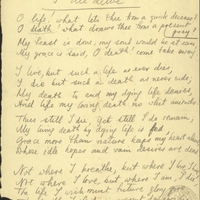 O life! what lets thee from a quick decease?
O death! what draws thee from a present
prey?
My feast is done, my soul would be at ease,
My grace is said, O death! come take away.
I live, but such a life as ever dies,
I die, but such a death as never ends,
My death to end my dying life denies,
And life my living death no whit amends.
Thus still I die, yet still I do revive,
My living death by dying life is fed,
Grace more than nature keeps my heart alive
Where idle hopes and vain desires are dead
Not where I breathe, but where I love, I
Not where I love, but where I am, I die
The life I wish must future glory